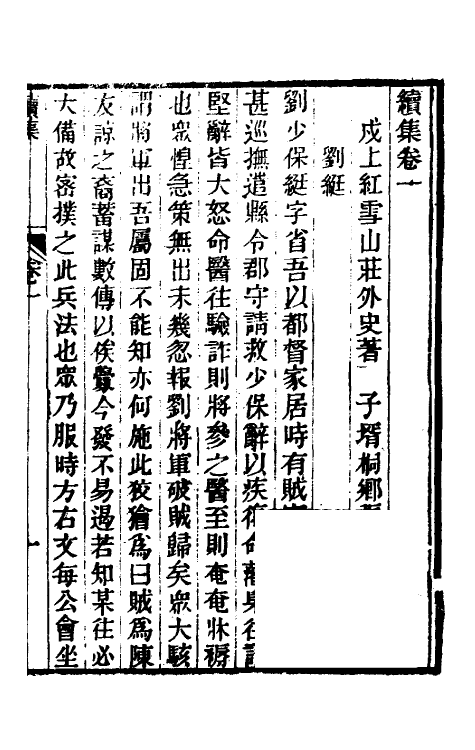 續集卷一
戍上紅雪山莊外史著　子壻桐鄉
劉綎
劉少保綎字省吾以都督家居時有賊
甚巡撫遣縣令郡守請救少保辭以疾復命
堅辭皆大怒命醫往驗詐則將參之醫至則奄奄牀褥
也眾惶急策無出未幾忽報劉將軍破賊歸矣眾大駭
謂將軍出吾屬固不能知亦何施此狡獪爲曰賊爲陳
友諒之裔蓄謀數傳以俟釁今發不易遏若知某往必
大備故密撲之此兵法也眾乃服時方右文每公會坐
續集
卷一
一